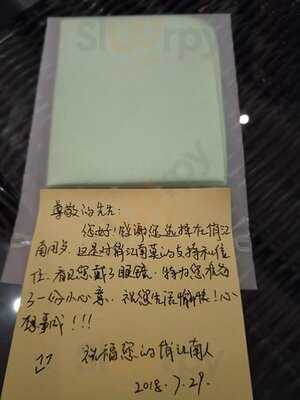 Slurrpy
尊敬的先生：
您好！感谢您选择在俏江
南用歺，这是对俏江南菜的支持和信
任．看见您戴了眼镜，特为您准备
了一份小心意．祝您生活愉快！心
想事成！！！
祝福您的俏江南人
2018.7.29.